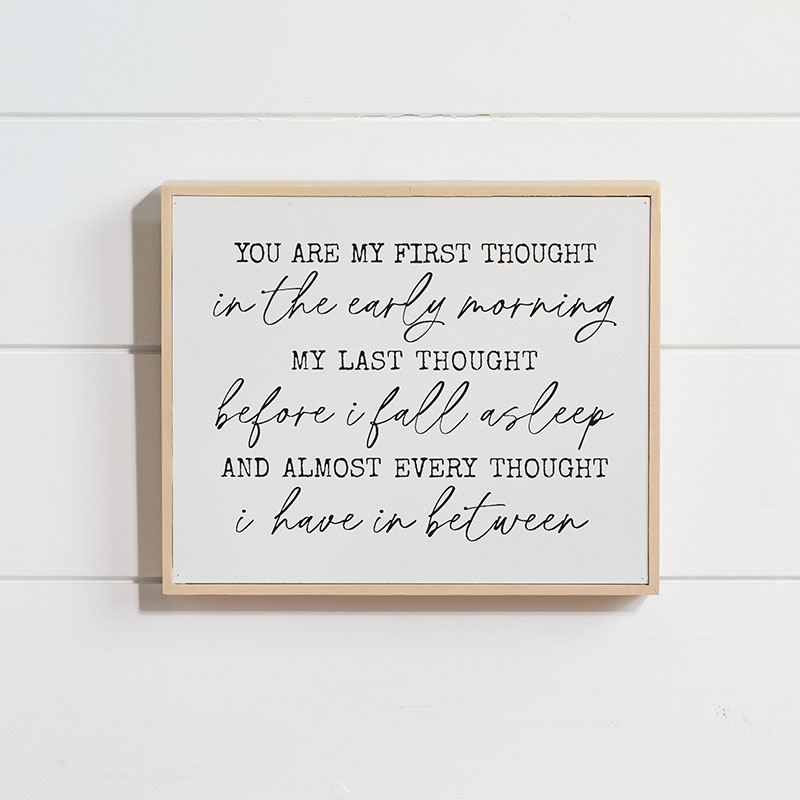 YOU ARE MY FIRST THOUGHT
in the early morning
MY LAST THOUGHT
before i fall asleep
AND ALMOST EVERY THOUGHT
i have in between